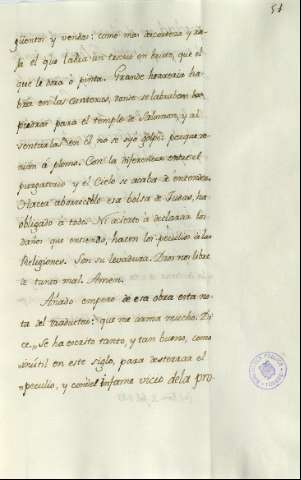 51
guentos y vendos: como mas
se el que labra un tosco en bruto, que el
que le dora o pinta. Grande horror ha-
bria en las canteras, donde se labraban las
piedras para el templo de Salomon, y al
sentarlas en el no se oyo golpe: porque ve-
nian a plomo. Con la diferencia entre el
purgatorio y el Cielo se acaba de entender.
Hacer aborrecible esa bolsa de Judas, ha
obligado a todo. Ni acierto a declarar los
daños que entiendo, hacen los peculios a las
Religiones. Son su levadura. Dios nos libre
de tanto mal. Amen.
Añado empero de esa obra esta no-
ta del traductor: que me arma mucho. Di-
ce, "Se ha escrito tanto, y tan bueno, como
"inútil en este siglo, para desterrar el
"peculio, y con el infame vicio de la pro-